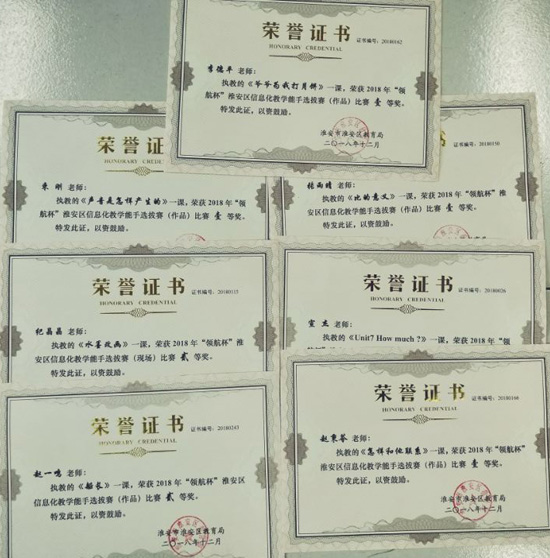 荣誉证书
HONORARY CREDENTIAL
证书编号：20180162
李德平 老师：
执教的《爷爷为我打月饼》一课，荣获2018年“领
航杯”淮安区信息化教学能手选拔赛（作品）比赛 壹 等奖。
特发此证，以资鼓励。
淮安市淮安区教育局
二〇一八年十二月
荣誉证书
HONORARY CREDENTIAL
朱刚 老师：
执教的《声音是怎样产生的》一课，荣获2018年“领
航杯”淮安区信息化教学能手选拔赛（作品）比赛 壹 等奖。
特发此证，以资鼓励。
证书
20180150
张雨晴 老师：
执教的《比的意义》一课，荣获2018年“领航杯”淮
安区信息化教学能手选拔赛（作品）比赛 壹 等奖。
特发此证，以资鼓励。
荣誉证书
HONORARY CREDENTIAL
证书编号：20180115
纪晶晶 老师：
执教的《水墨改画》一课，荣获2018年“领航杯”淮
安区信息化教学能手选拔赛（现场）比赛 贰 等奖。
特发此证，以资鼓励。
荣誉证书
HONORARY CREDENTIAL
证书编号：20180026
宣杰 老师：
执教的《Unit7 How much？》一课，荣获2018年“领
荣誉证书
HONORARY CREDENTIAL
证书编号：20180243
赵一鸣 老师：
执教的《船长》一课，荣获2018年“领航杯”淮安区
信息化教学能手选拔赛（作品）比赛 贰 等奖。
特发此证，以资鼓励。
淮安市淮安区教育局
二〇一八年十二月
荣誉证书
HONORARY CREDENTIAL
证书编号：20180166
赵秉苓 老师：
执教的《怎样和他联系》一课，荣获2018年“领航杯”
淮安区信息化教学能手选拔赛（作品）比赛 壹 等奖。
特发此证，以资鼓励。
淮安市淮安区教育局
二〇一八年十二月